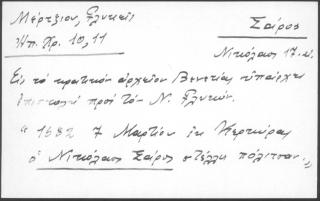 Μέρτζιου, Γλυκεῖς
Ἠπ. Χρ. 10, 11
Σαίρος
Νικόλαος 17.αἰ.
Εἰς τὸ κρατικὸν ἀρχεῖον Βενετίας ὑπάρχει
ἐπιστολὴ πρὸς τὸν Ν. Γλυκύν.
"1682 7 Μαρτίου ἐκ Κερκύρας
ὁ Νικόλαος Σαίρος στέλλει πόλιτσαν...